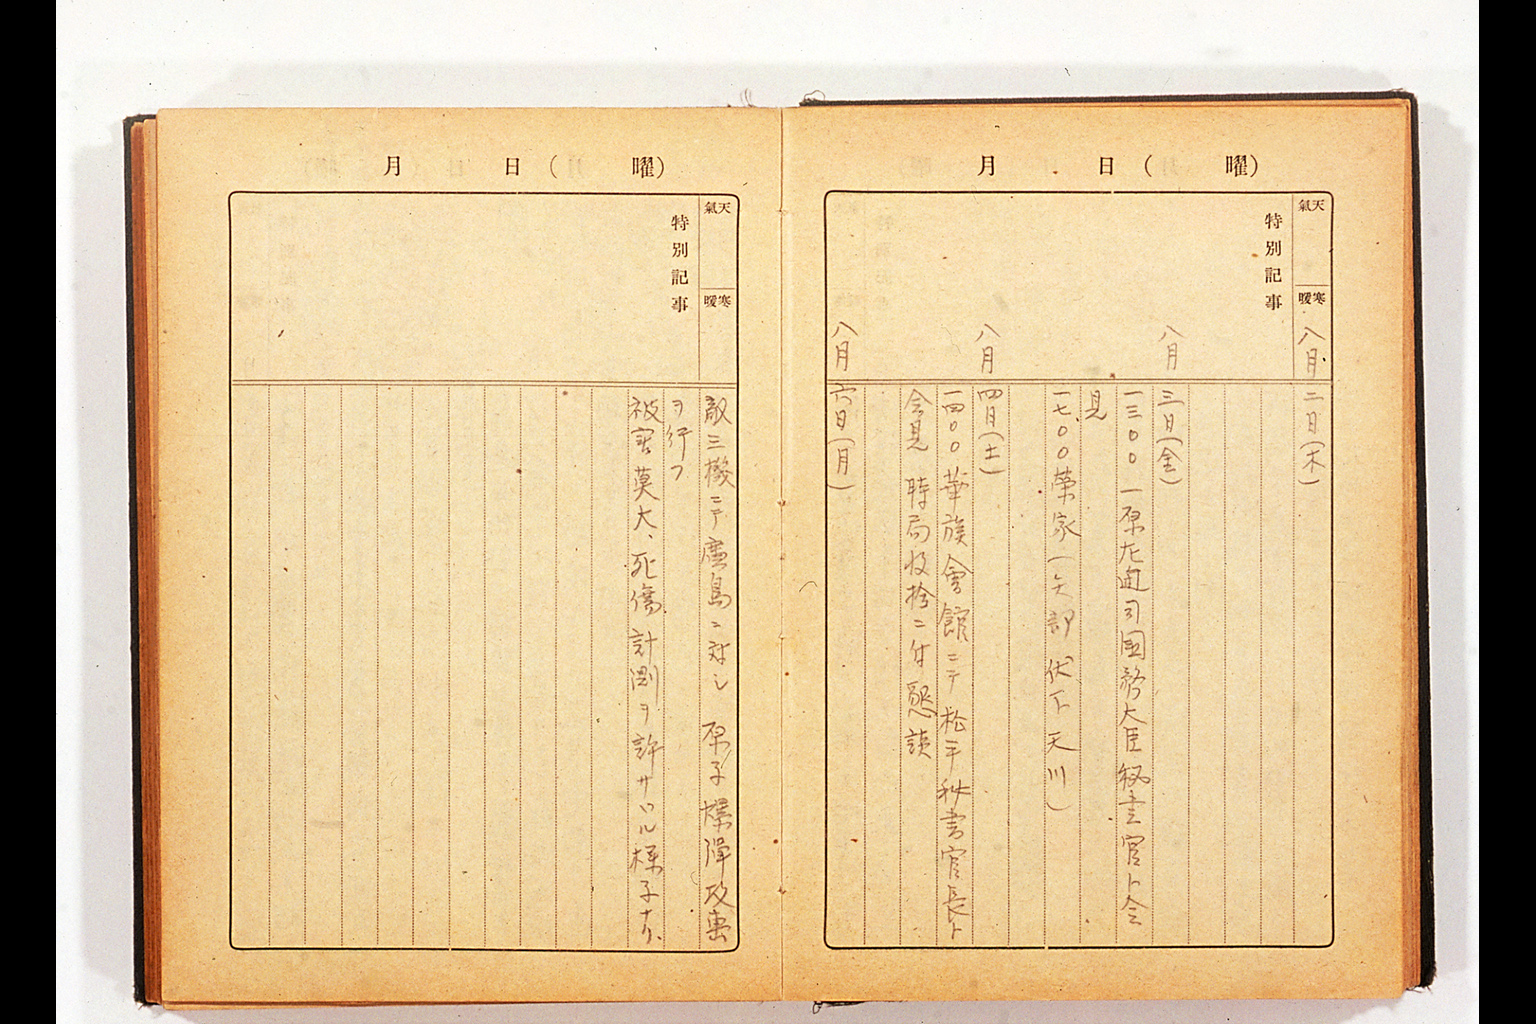 月　日（　曜）
天氣
寒暖
特別記事
八月二日（木）
八月三日（金）
一三〇〇 一原左迺司國務大臣秘書官ト会
見
一七〇〇 榮家（矢部 伏下 天川）
八月四日（土）
一四〇〇 華族會館ニテ松平秘書官長ト
会見 時局收拾ニ付懇談
八月六日（月）
月　日（　曜）
天氣
寒暖
特別記事
敵三機ニテ廣島ニ対シ 原子爆弾攻撃
ヲ行フ
被害莫大、死傷計測ヲ許サヽル様子ナリ、